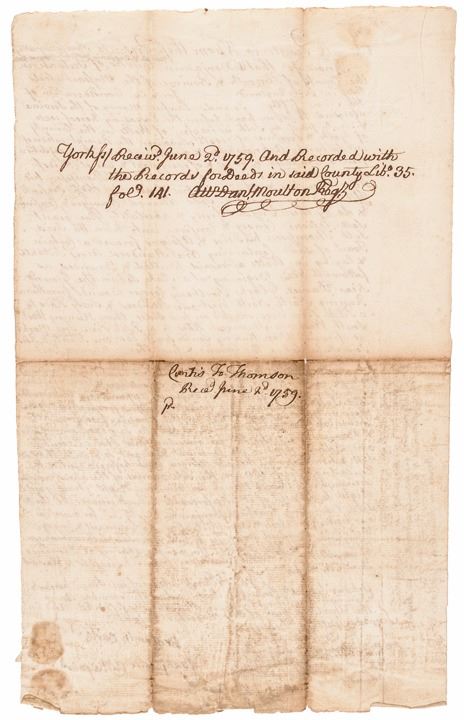 York ss/ Receiv.d June 2.d 1759. And Recorded with
the Records for Deeds in said County Lib.o 35.
fol.o 141. Att.r Dan.l Moulton Reg.r
Curtis To Thomson
Rece.d June 2.d 1759.
p.